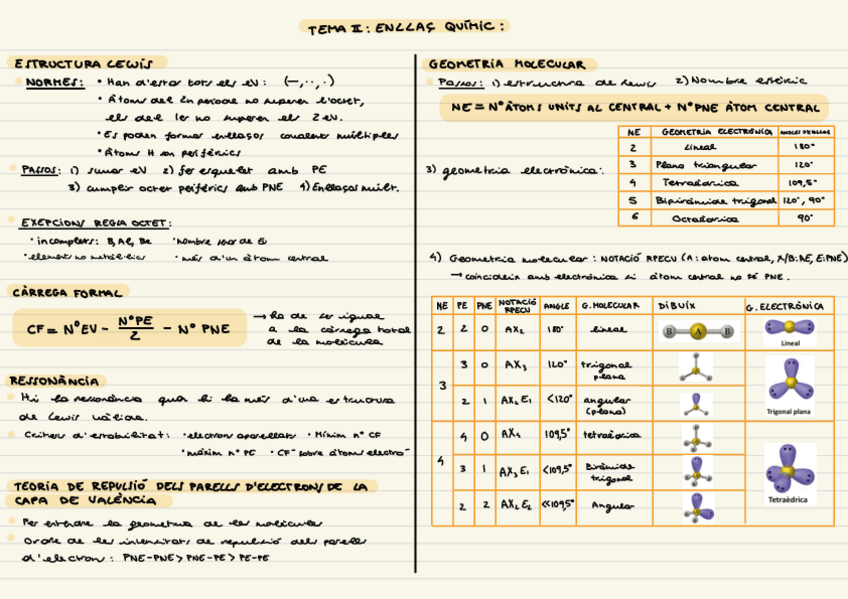 TEMA II: ENLLAÇ QUÍMIC:
ESTRUCTURA LEWIS
NORMES: • Han d'estar tots els eV: (—, ··, ·)
• Àtoms del 2n període no superen l'octet,
els del 1er no superen els 2 eV.
• Es poden formar enllaços covalents múltiples
• Àtoms H son perifèrics
PASSOS: 1) sumar eV 2) fer esquelet amb PE
3) cumplir octet perifèrics amb PNE 4) Enllaços múlt.
EXEPCIONS REGLA OCTET:
• incomplets: B, Al, Be • nombre senar de e⁻
• elements no metàl·lics • més d'un àtom central
CÀRREGA FORMAL
CF = NºEV - NºPE/2 - Nº PNE → ha de ser igual
a la càrrega total
de la molècula
RESSONÀNCIA
Hi ha ressonància quan hi ha més d'una estructura
de Lewis vàlida.
Criteris d'estabilitat: • electrons aparellats • Mínim nº CF
• màxim nº PE • CF⁻ sobre àtoms electro⁻
TEORIA DE REPULSIÓ DELS PARELLS D'ELECTRONS DE LA
CAPA DE VALÈNCIA
Per entendre la geometria de les molècules
Ordre de les intensitats de repulsió dels parells
d'electrons: PNE-PNE > PNE-PE > PE-PE
GEOMETRIA MOLECULAR
Passos: 1) estructura de Lewis 2) Nombre estèric
NE = Nº ÀTOMS UNITS AL CENTRAL + Nº PNE ÀTOM CENTRAL
3) geometria electrònica:
NE GEOMETRIA ELECTRÒNICA ANGLES D'ENLLAÇ
2 Lineal 180°
3 Plana triangular 120°
4 Tetraèdrica 109,5°
5 Bipiràmide trigonal 120°, 90°
6 Octaèdrica 90°
4) Geometria molecular: NOTACIÓ RPECV (A: atom central, X/B: AE, E: PNE)
→ coincideix amb electrònica si àtom central no té PNE.
NE PE PNE NOTACIÓ RPECV ANGLE G. MOLECULAR DIBUIX G. ELECTRÒNICA
2 2 0 AX₂ 180° lineal B A B Lineal
3 3 0 AX₃ 120° trigonal plana Trigonal plana
2 1 AX₂E₁ <120° angular (plana)
4 4 0 AX₄ 109,5° tetraèdrica Tetraèdrica
3 1 AX₃E₁ <109,5° Piràmide trigonal
2 2 AX₂E₂ <<109,5° Angular